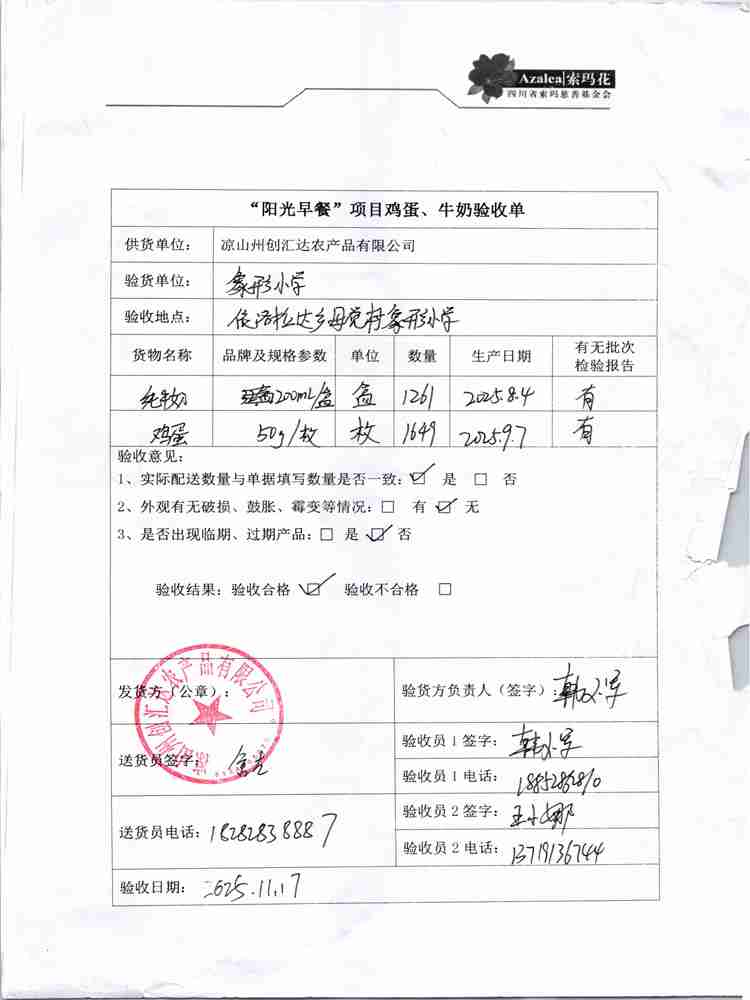 Azalea|索玛花
四川省索玛慈善基金会
“阳光早餐”项目鸡蛋、牛奶验收单
供货单位： 凉山州创汇达农产品有限公司
验货单位： 象形小学
验收地点： 依洛拉达乡母觉村象形小学
货物名称 品牌及规格参数 单位 数量 生产日期 有无批次检验报告
纯牛奶 200mL/盒 盒 1261 2025.8.4 有
鸡蛋 50g/枚 枚 1649 2025.9.7 有
验收意见：
1、实际配送数量与单据填写数量是否一致：☑ 是 □ 否
2、外观有无破损、鼓胀、霉变等情况：□ 有 ☑ 无
3、是否出现临期、过期产品：□ 是 ☑ 否
验收结果：验收合格 ☑ 验收不合格 □
发货方（公章）：
凉山州创汇达农产品有限公司
验货方负责人（签字）：
送货员签字：
验收员 1 签字：
验收员 1 电话：
送货员电话： 18282838887
验收员 2 签字： 王小娜
验收员 2 电话： 13719136744
验收日期： 2025.11.17